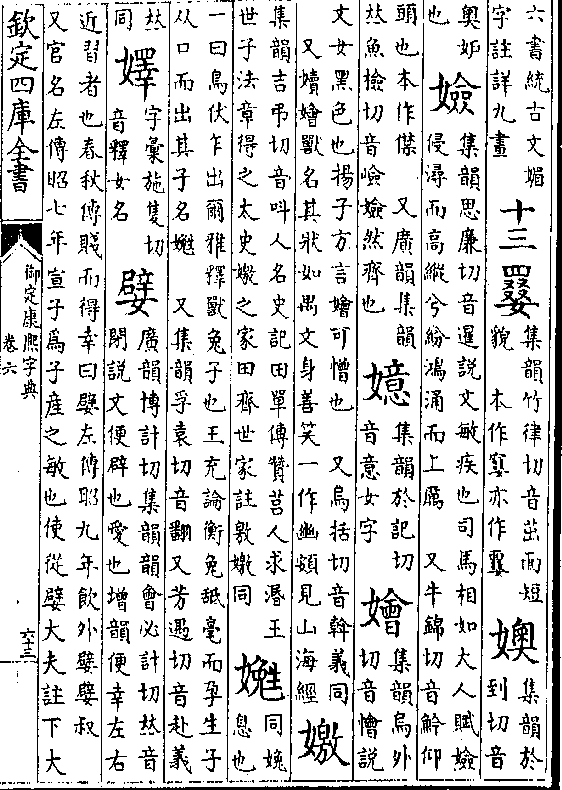 六書統古文媚
字註詳九畫
十三
集韻竹律切音茁面短
貌 本作亦作
㜩
集韻於
到切音
奧妒
也
嬐
集韻思廉切音暹說文敏疾也司馬相如大人賦嬐
侵潯而高縱兮紛鴻涌而上厲 又牛錦切音仰
頭也本作僸 又廣韻集韻
𠀤魚檢切音噞嬐然齊也
嬑
集韻於記切
音意女字
嬒
集韻烏外
切音懀說
文女黑色也揚子方言嬒可憎也 又烏括切音斡義同
又嬻嬒獸名其狀如禺文身善笑一作幽頞見山海經
嬓
集韻吉弔切音叫人名史記田單傳贊莒人求湣王
世子法章得之太史嬓之家田齊世家註敫嬓同
嬔
同娩
息也
一曰鳥伏乍出爾雅釋獸兔子也王充論衡兔舐毫而孕生子
从口而出其子名嬔 又集韻孚袁切音翻又芳遇切音赴義
𠀤
同
嬕
字彙施隻切
音釋女名
嬖
廣韻博計切集韻韻會必計切𠀤音
閉說文便嬖也愛也增韻便幸左右
近習者也春秋傳賤而得幸曰嬖左傳昭九年飲外嬖嬖叔
又官名左傳昭七年宣子爲子產之敏也使從嬖大夫註下大
欽定四庫全書
御定康熙字典
卷六
六十三